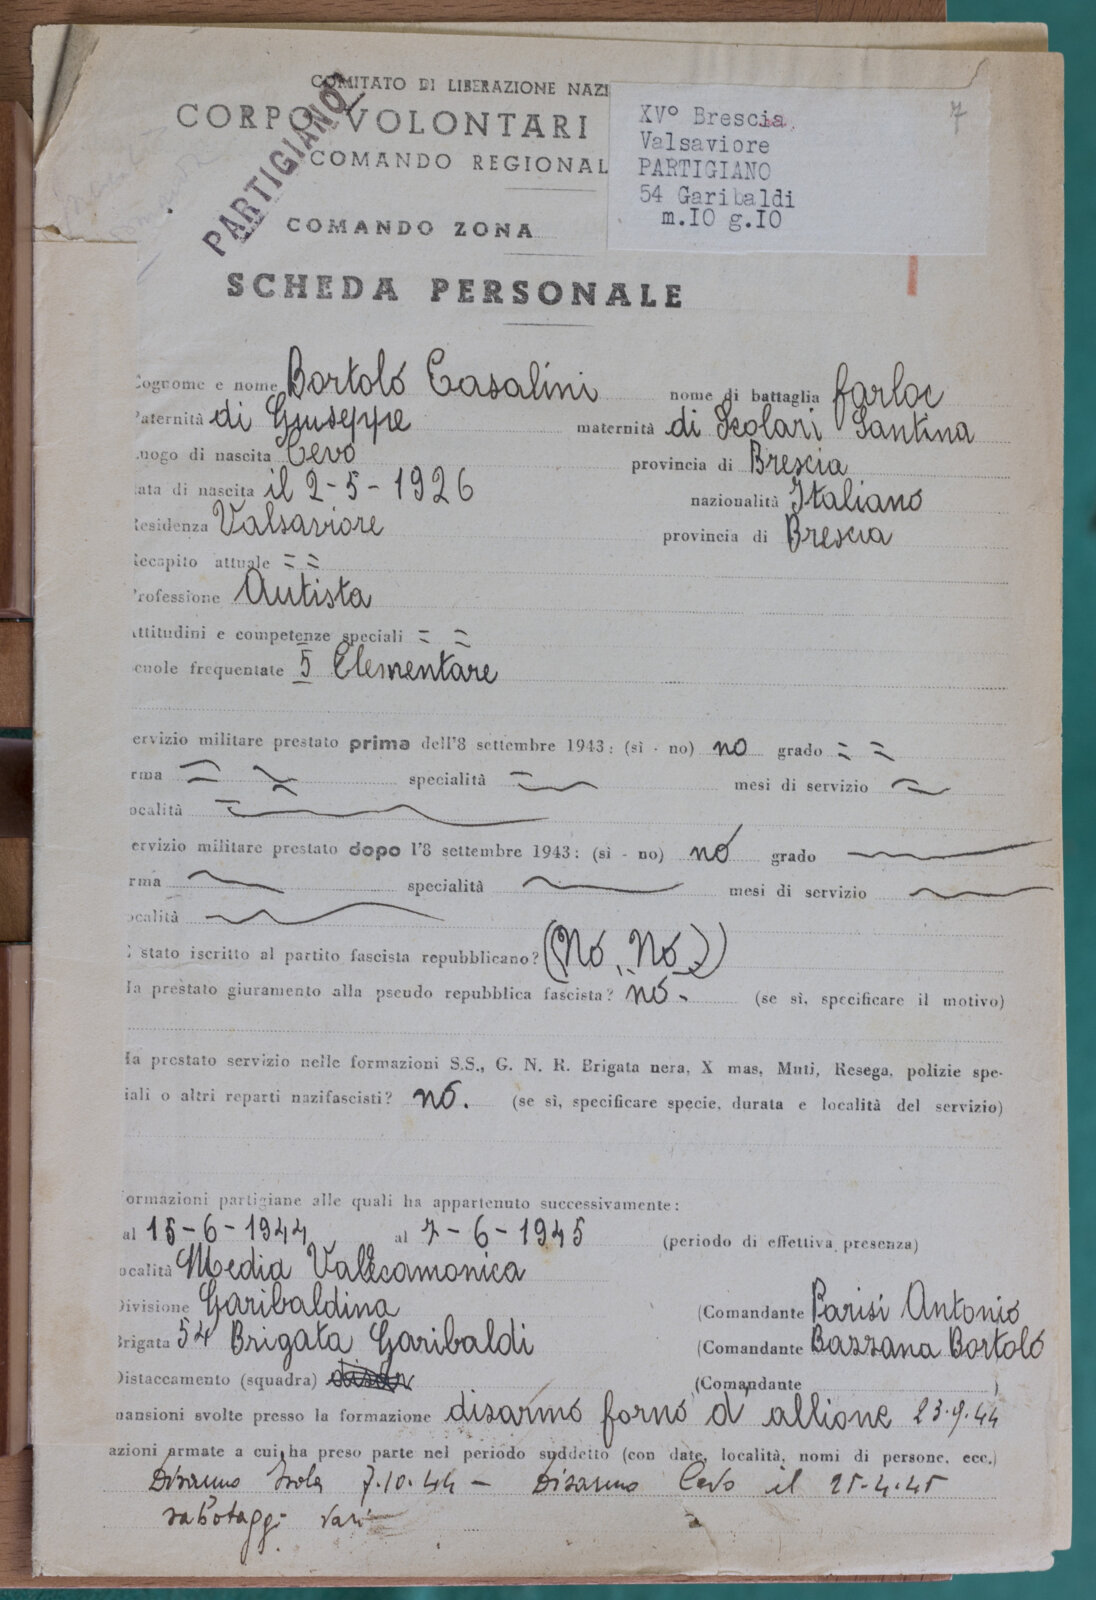 COMITATO DI LIBERAZIONE NAZI
CORPO VOLONTARI
COMANDO REGIONAL
PARTIGIANO
XV° Brescia.
Valsaviore
PARTIGIANO
54 Garibaldi
m.IO g.IO
7
COMANDO ZONA
SCHEDA PERSONALE
Cognome e nome Bortolo Casalini nome di battaglia farloc
Paternità di Giuseppe maternità di Scolari Santina
uogo di nascita Cevo provincia di Brescia
ata di nascita il 2-5-1926 nazionalità Italiano
Residenza Valsaviore provincia di Brescia
Recapito attuale = =
Professione Autista
Attitudini e competenze speciali = =
cuole frequentate 5 Elementare
ervizio militare prestato prima dell'8 settembre 1943: (sì - no) no grado = =
rma specialità mesi di servizio
ocalità
ervizio militare prestato dopo l'8 settembre 1943: (sì - no) no grado
rma specialità mesi di servizio
ocalità
È stato iscritto al partito fascista repubblicano? (No, No)
Ha prestato giuramento alla pseudo repubblica fascista? no. (se sì, specificare il motivo)
Ha prestato servizio nelle formazioni S.S., G. N. R. Brigata nera, X mas, Muti, Resega, polizie spe-
iali o altri reparti nazifascisti? no. (se sì, specificare specie, durata e località del servizio)
ormazioni partigiane alle quali ha appartenuto successivamente:
al 15-6-1944 al 7-6-1945 (periodo di effettiva presenza)
ocalità Media Vallecamonica
Divisione Garibaldina (Comandante Parisi Antonio
Brigata 54 Brigata Garibaldi (Comandante Bazzana Bortolo
Distaccamento (squadra) (Comandante )
mansioni svolte presso la formazione disarmo forno d'allione 23.9.44
azioni armate a cui ha preso parte nel periodo suddetto (con date, località, nomi di persone, ecc.)
Disarmo Isola 7.10.44 - Disarmo Cevo il 25-4-45
sabotaggi vari